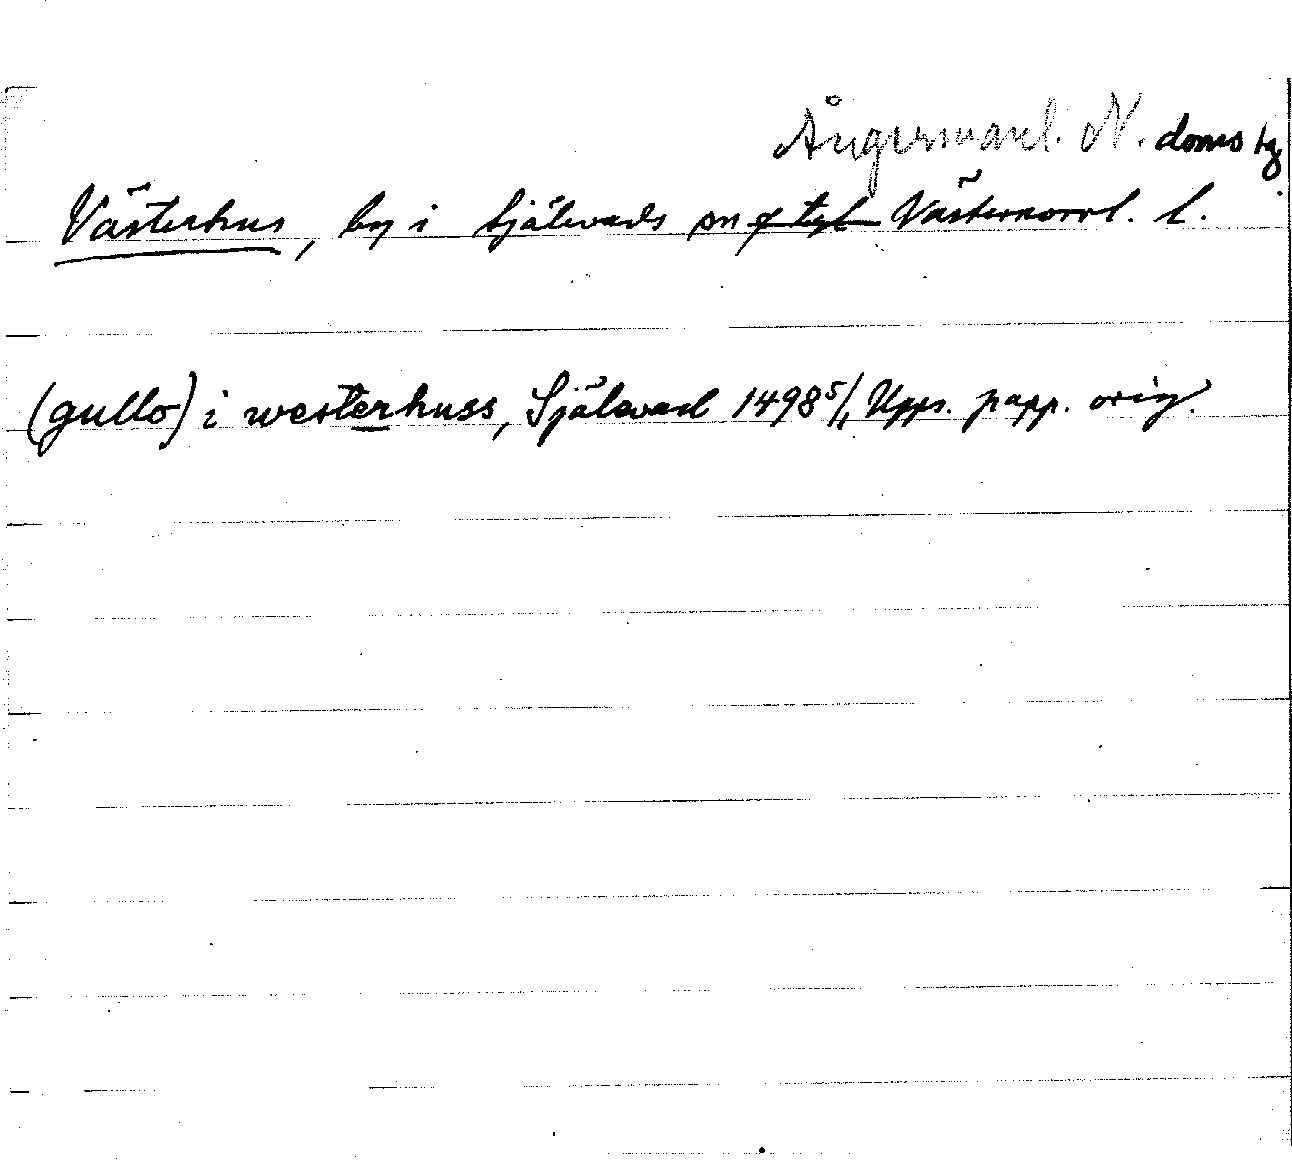 Ångermanl. N. doms tg
Västerhus, by i Själevads sn Västernorrl. l.
(gullo) i westerhuss, Själevad 1498 5/1 Upps. papp. orig.